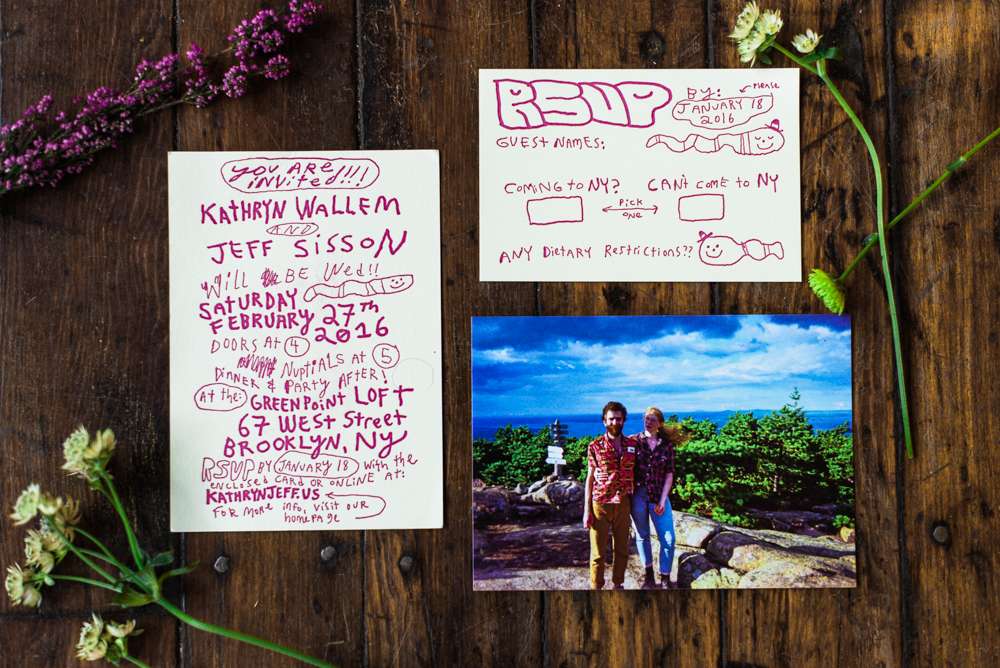 YOU ARE
INVITED!!!
KATHRYN WALLEM
AND
JEFF SISSON
WILL BE WED!!
SATURDAY
FEBRUARY 27TH
2016
DOORS AT 4
NUPTIALS AT 5
DINNER & PARTY AFTER!
AT THE: GREENPOINT LOFT
67 WEST STREET
BROOKLYN, NY
RSVP BY JANUARY 18 WITH THE
ENCLOSED CARD OR ONLINE AT:
KATHRYNJEFF.US
FOR MORE INFO, VISIT OUR
HOMEPAGE
RSVP BY: PLEASE
JANUARY 18
2016
GUEST NAMES:
COMING TO NY? CAN'T COME TO NY
PICK
ONE
ANY DIETARY RESTRICTIONS??